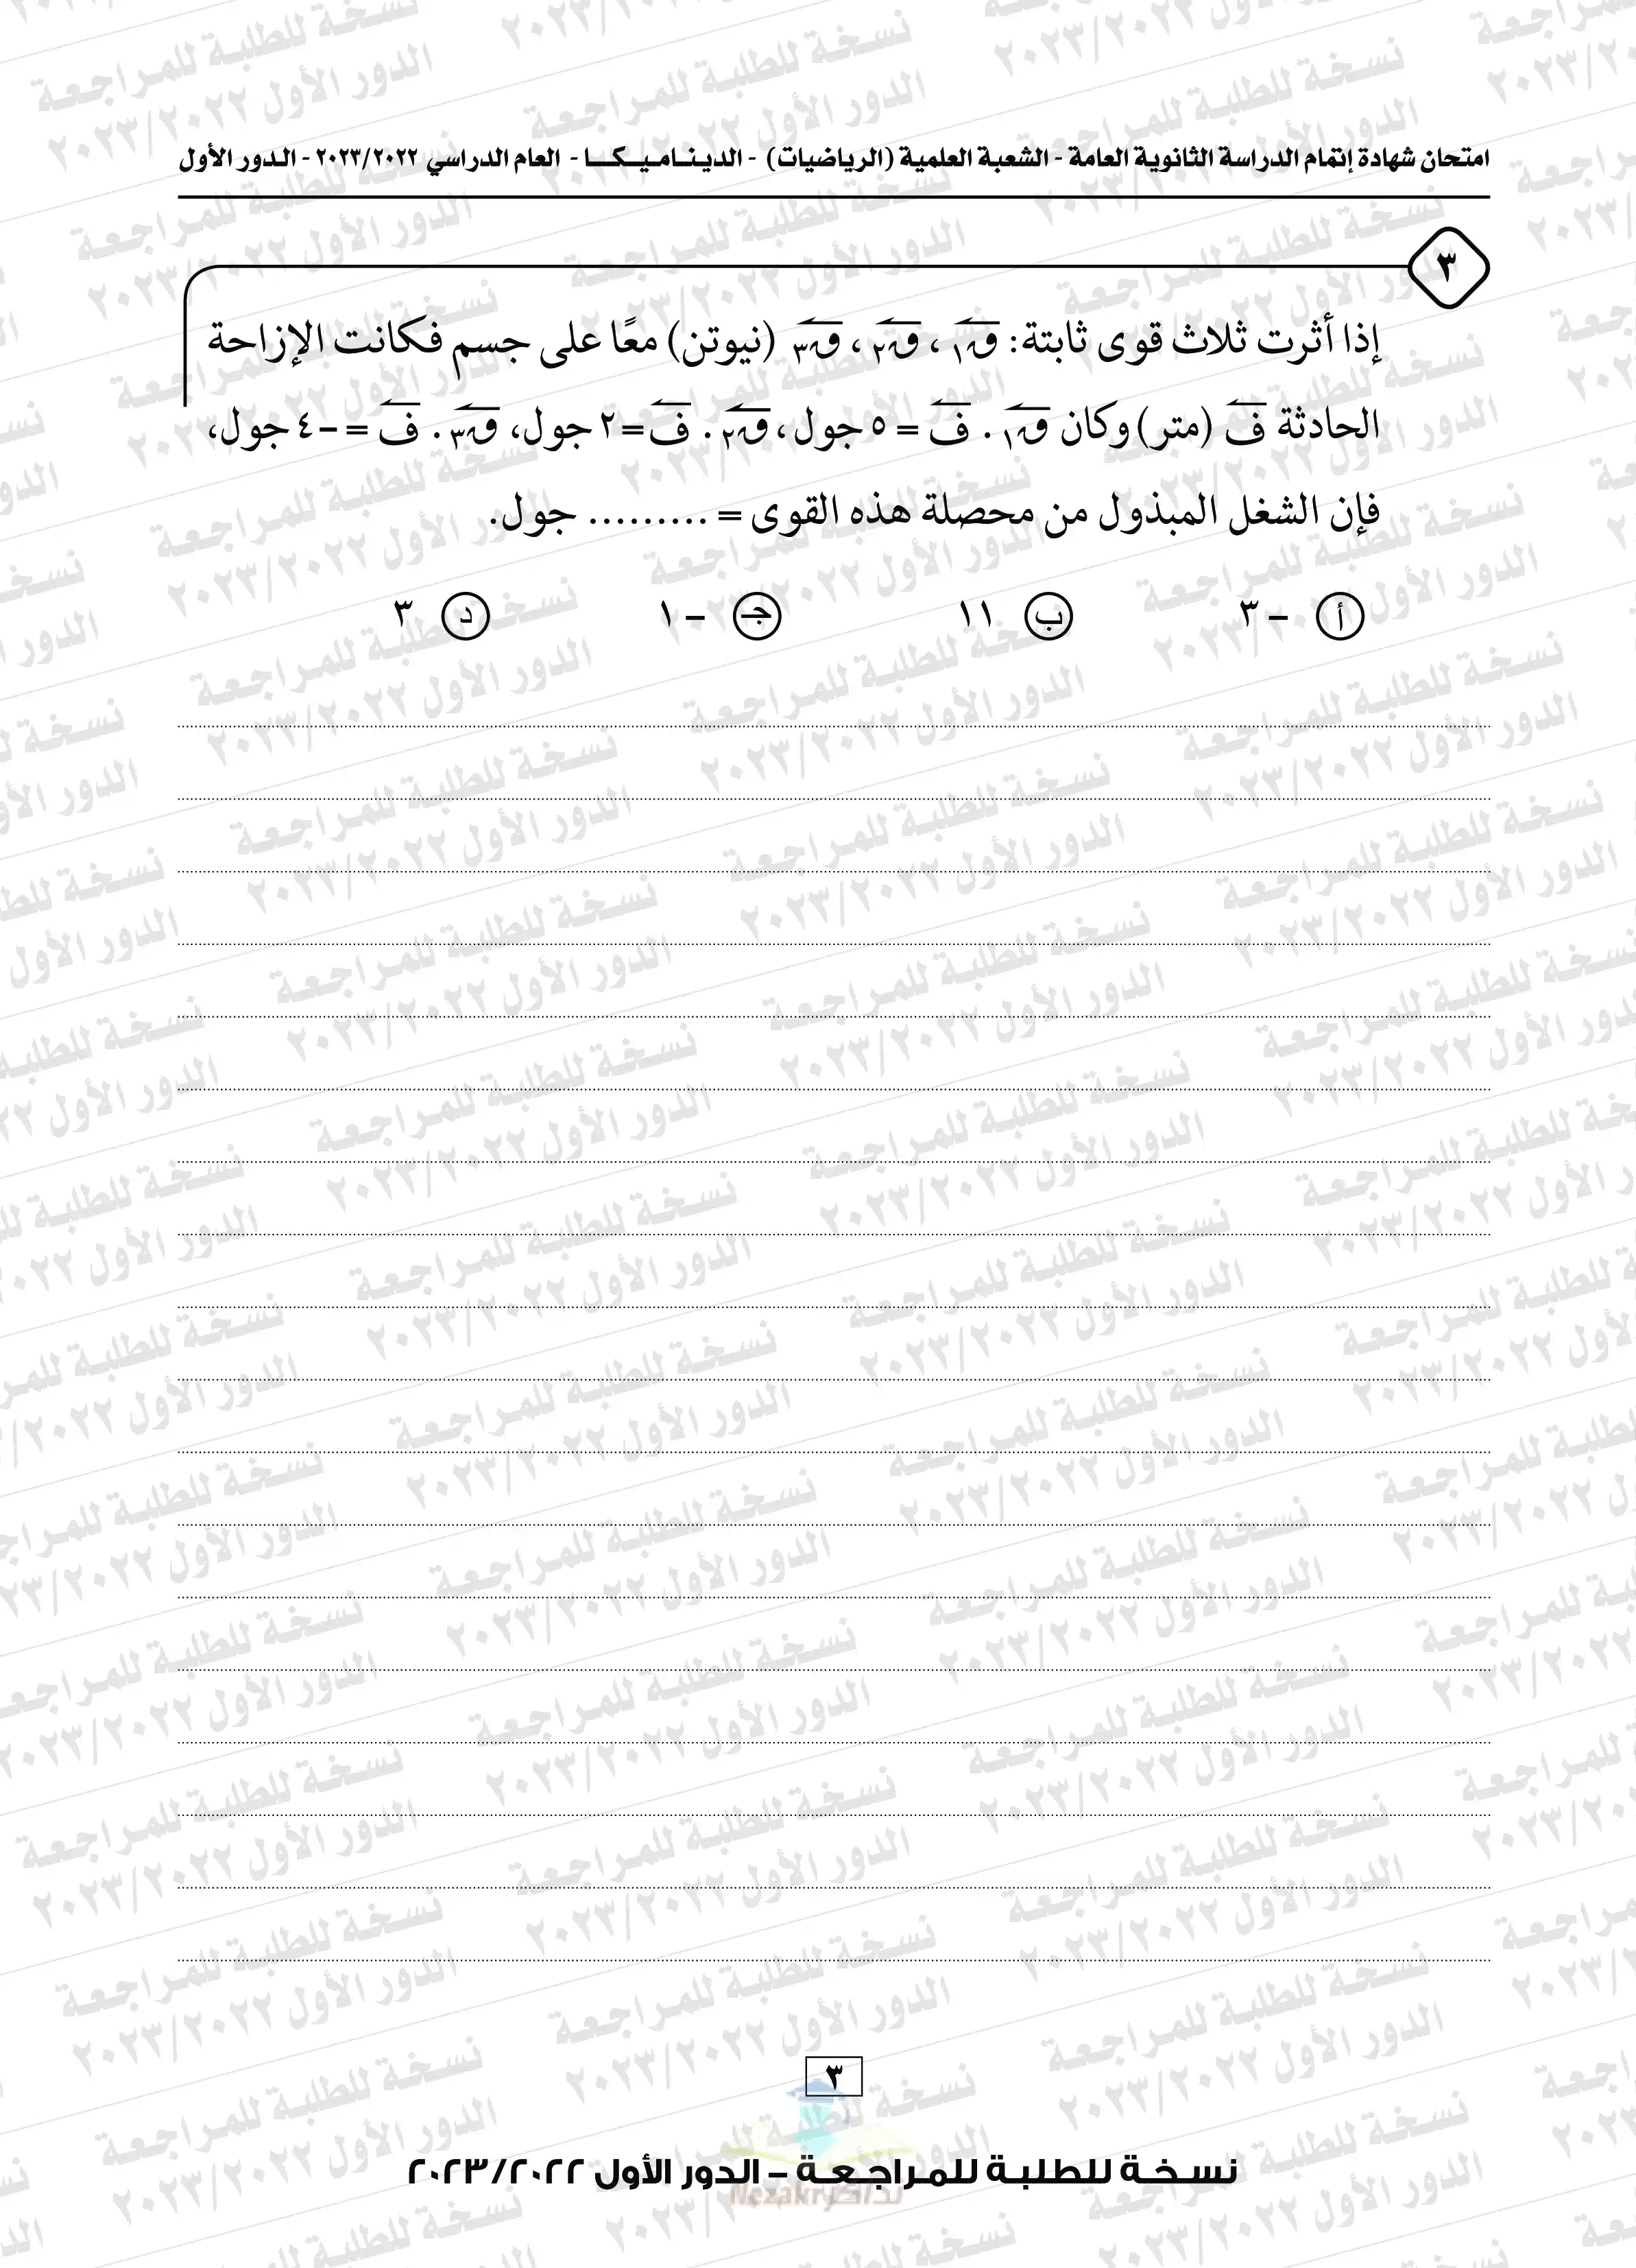 امتحان شهادة إتمام الدراسة الثانوية العامة - الشعبة العلمية (الرياضيات) - الديـنـامـيـكـــا - العام الدراسي ٢٠٢٣/٢٠٢٢ - الدور الأول
٣
إذا أثرت ثلاث قوى ثابتة: ق١ ، ق٢ ، ق٣ (نيوتن) معًا على جسم فكانت الإزاحة
الحادثة ف (متر) وكان ق١ . ف = ٥ جول ، ق٢ . ف = ٢ جول، ق٣ . ف = -٤ جول،
فإن الشغل المبذول من محصلة هذه القوى = ......... جول.
أ - ٣ ب ١١ جـ - ١ د ٣
٣
نسـخـة للطلبـة للمـراجـعـة – الدور الأول ٢٠٢٣/٢٠٢٢
نذاكر Nezakr